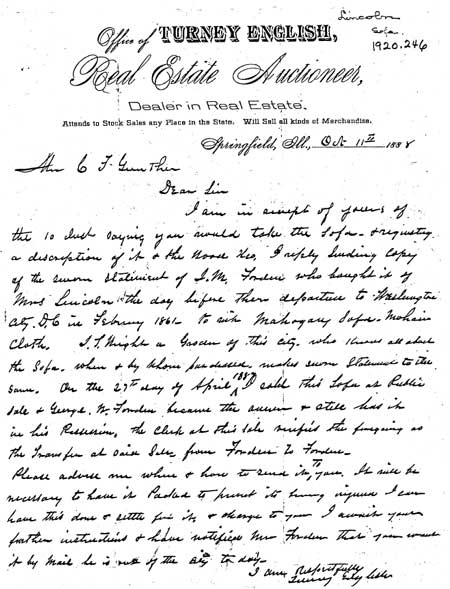 Lincoln
Sofa.
1920.246
Office of TURNEY ENGLISH,
Real Estate Auctioneer,
Dealer in Real Estate.
Attends to Stock Sales any Place in the State. Will Sell all kinds of Merchandise.
Springfield, Ill., Oct 11th 1888
Mr C F Gunther
Dear Sir
I am in receipt of yours of
the 10 Inst saying you would take the Sofa. &
a discription of it & the wood &c, I reply sending Copy
of the sworn statement of I. M. who bought it of
Mrs Lincoln the day before there departure to Washington
City D.C in 1861 Mahogany Sofa. Mohair
Cloth. a Grocer of this City. who Knows all about
the Sofa. when & by whom makes sworn Statement to the
Same. On the 27th day of April, 1887 I sold this Sofa at Public
Sale & George. W. became the & still has it
in his Possession, the Clerk at this Sale the foregoing as
the Transfer at Said Sale, from to
Please advise me where & how to send it, to you. It will be
necessary to have it Packed to its being I can
have this done & settle for it, & charge to you I await your
further instructions & have notified Mr that you want
it by Mail he is out of the City to day.
I am Respectfully
Turney English